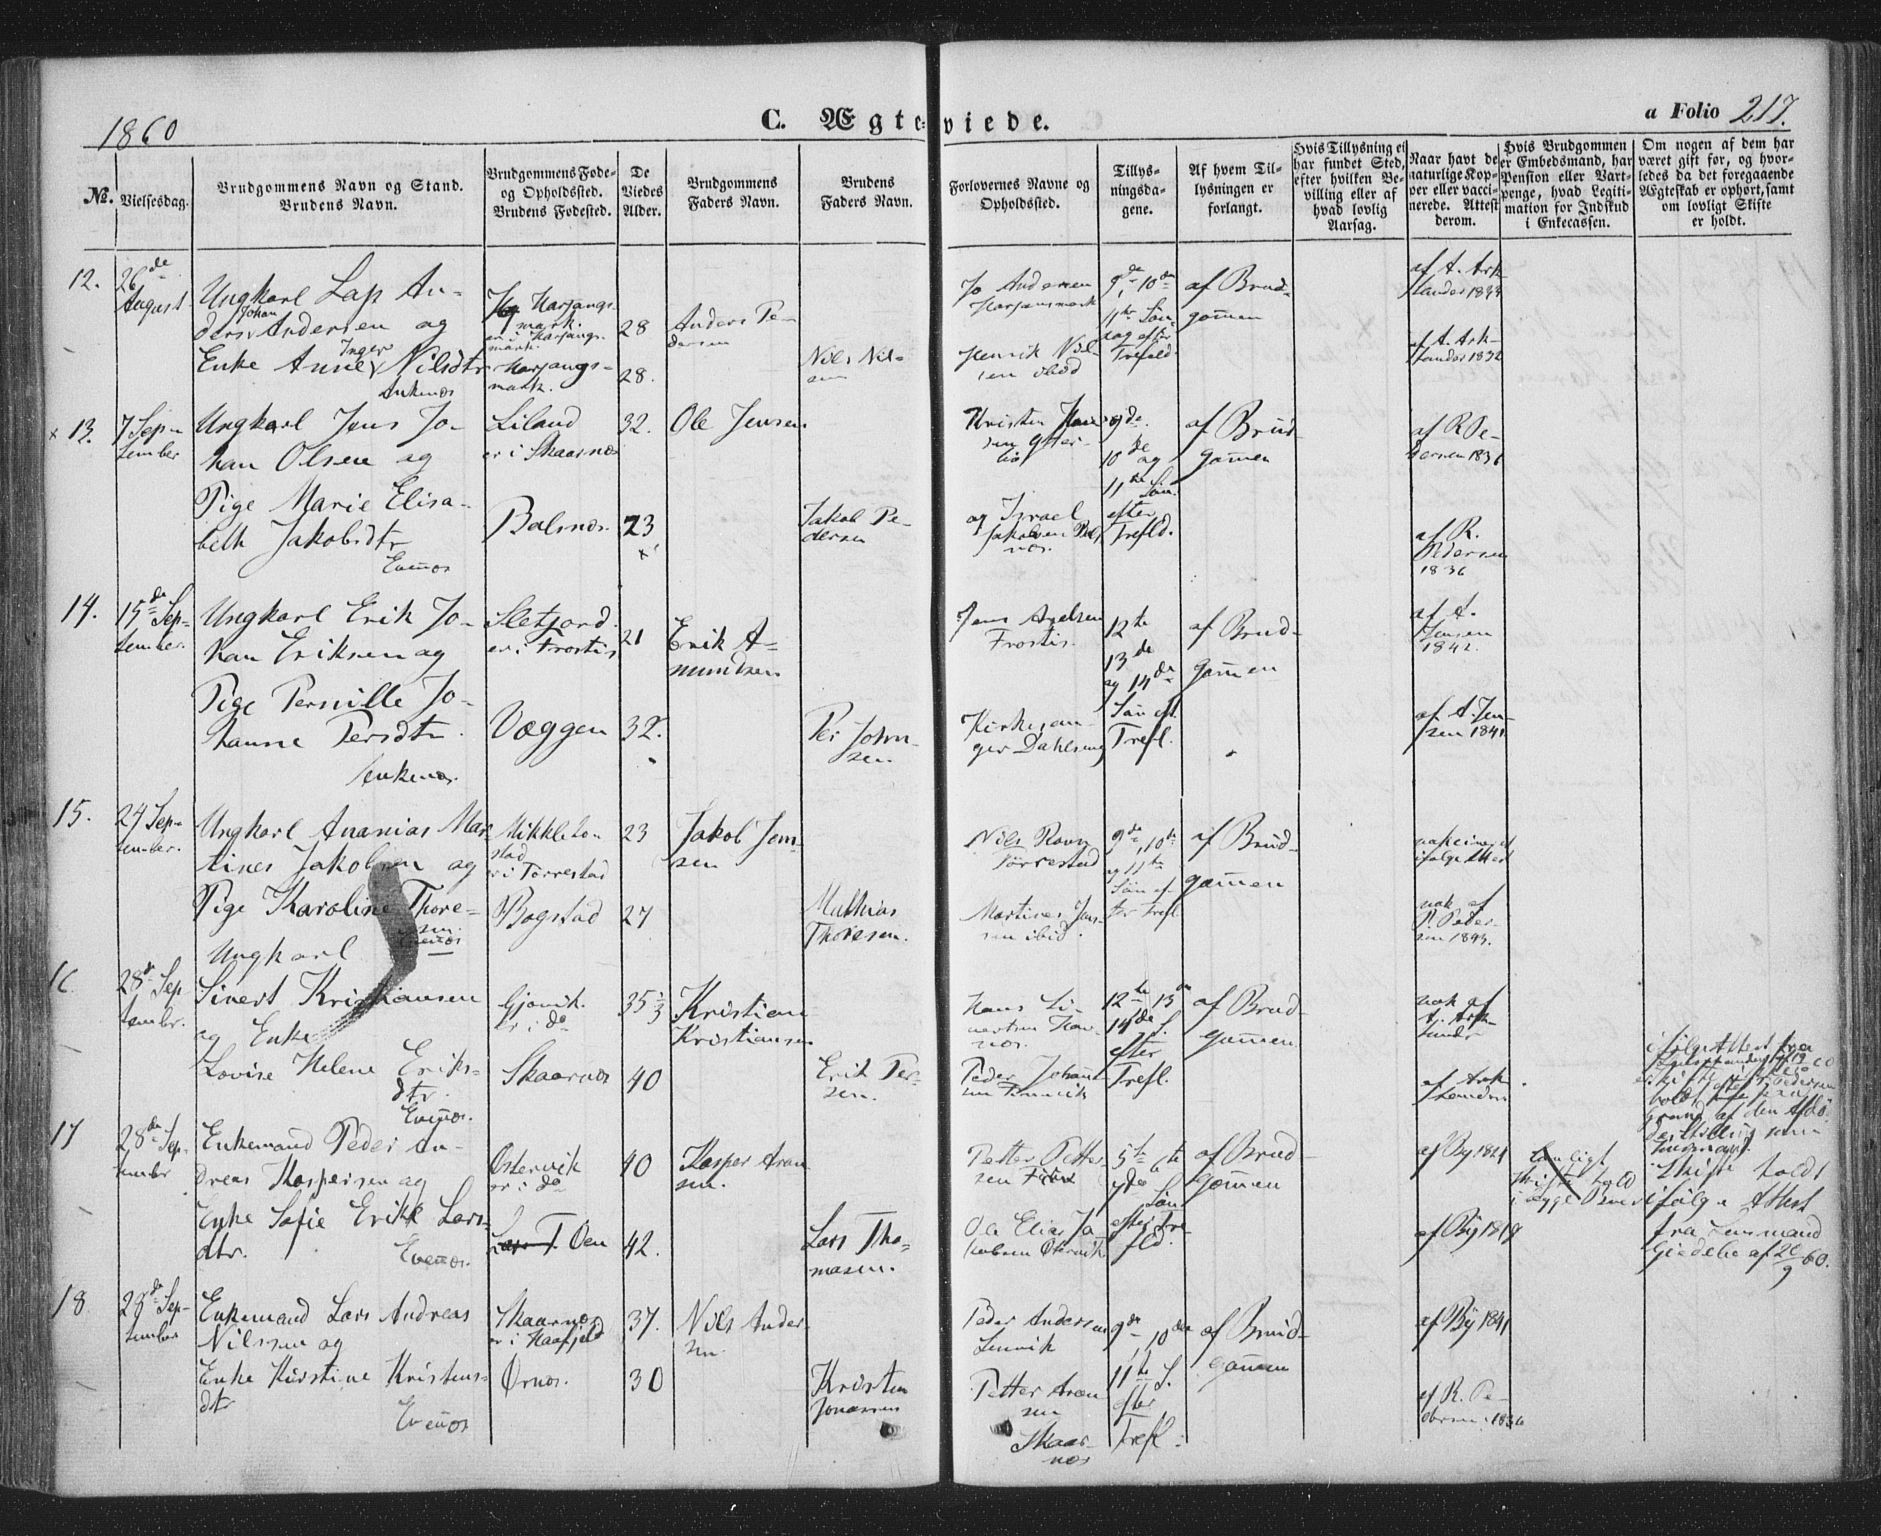 1860
C. Ægteviede.
a Folio 217.
No.
Vielsesdag.
Brudgommens Navn og Stand.
Brudens Navn.
Brudgommens Føde-
og Opholdssted.
Brudens Fødested.
De
Viedes
Alder.
Brudgommens
Faders Navn.
Brudens
Faders Navn.
Forlovernes Navne og
Opholdssted.
Tillys-
ningsda-
gene.
Af hvem Til-
lysningen er
forlangt.
Hvis Tillysning ei
har fundet Sted,
efter hvilken Be-
villing eller af
hvad lovlig
Aarsag.
Naar havt de
naturlige Kop-
per eller vacci-
nerede. Attest
derom.
Hvis Brudgommen
er Embedsmand, har
Pension eller Vart-
penge, hvad Legiti-
mation for Indskud
i Enkecassen.
Om nogen af dem har
været gift før, og hvor-
ledes da det foregaaende
Ægteskab er ophørt, samt
om lovligt Skifte
er holdt.
12.
26de
August
Ungkarl Lap An-
ders Johan Andersen og
Enke Anne Inger Nilsdtr
Ankenes
Harjangs-
mark.
er i Harjangs-
mark.
Harjangs-
mark.
28
28.
Anders Pe-
dersen
Nils Nil-
sen
Jo Andersen
Harjansmark
Henrik Nil-
sen ibid
9de 10de
11te Søn-
dag efter
Trefold.
af Brud-
gommen
af A. Ark-
lander 1833
af A. Ark-
lander 1832
× 13.
7 Sep-
tember
Ungkarl Jens Jo-
han Olsen og
Pige Marie Elisa-
beth Jakobsdtr
Evenes
Liland
er i Skaarnes
Balsnes.
32.
23
Ole Jensen
Jakob Pe-
dersen
Kristen Han-
sen Ytter-
lid
og Israel
Jakobsen Bals-
nes.
9de.
10de og
11te Søn.
efter
Trefld.
af Brud-
gommen
af R Pe-
dersen 1836
af R.
Pedersen
1836
14.
15de Sep-
tember.
Ungkarl Erik Jo-
han Eriksen og
Pige Pernille Jo-
hanne Persdtr.
Ankenes.
Sletjord.
er i Frostis
Væggen
21
32.
Erik A-
mundsen
Per John-
sen.
Jens Axelsen
Frostis.
Kirkesan-
ger Dahlseng
12te
13de
og 14de
Søn eft.
Trefl.
af Brud-
gommen
af A.
Jensen
1842.
af A. Jen-
sen 1841
15.
24 Sep-
tember.
Ungkarl Ananias Mar-
tines Jakobsen og
Pige Karoline Thore-
sen.
Evenes
Mikklebo-
stad
er i Tørrestad
Bogstad
23
27
Jakob Jen-
sen
Mathias
Thoresen.
Nils Ravn
Tørrestad
Martines Jen-
sen ibid.
9de, 10te
og 11te
Søn ef-
ter Trefl
af Brud-
gommen
vakcineret
ifølge Attest
vak af
R. Peder-
sen 1843.
16
28de Sep
tembr.
Ungkarl
Sivert Kristiansen
og Enke
Lovise Helene Eriks-
dtr.
Evenes.
Gjønvik.
er i do
Skaarnes
35⅓
40
Kristian
Kristiansen
Erik Per-
sen.
Peder Johan-
12te 13de
14de S.
efter
Trefl.
af Brud-
gommen
vak af
A. Ark-
lander
af Ark
lander
17
28de Sep-
tembr
Enkemand Peder An-
dreas Kaspersen og
Enke Sofie Erikk Lars-
dtr.
Evenes.
Østervik
er i do
Øen
40
42.
Kasper Aron
sen.
Lars Tho-
masen.
Petter Petter-
sen
Ole Elias Ja-
kobsen Østervik
5te 6te
7de
Søn
efter Tre
fld.
af Brud-
gommen
af By 1824
af By 1819
Skifte holdt
ifølge Attest
fra Lensmand
Giedebe af 20/9 60.
18
28de Sep-
tember
Enkemand Lars Andreas
Nilssen og
Enke Kirstine Kristens-
dtr
Evenes
Skaarnes
er i Haafjeld
Ørnes.
37.
30
Nils Ander-
sen.
Kristen
Jonassen
Peder Andersen
Lenvik
Petter Aron
sen
Skaar-
nes
9de 10de
11te S.
efter
Trefl.
af Brud-
gommen
af By 1841
af R. Pe-
dersen. 1836